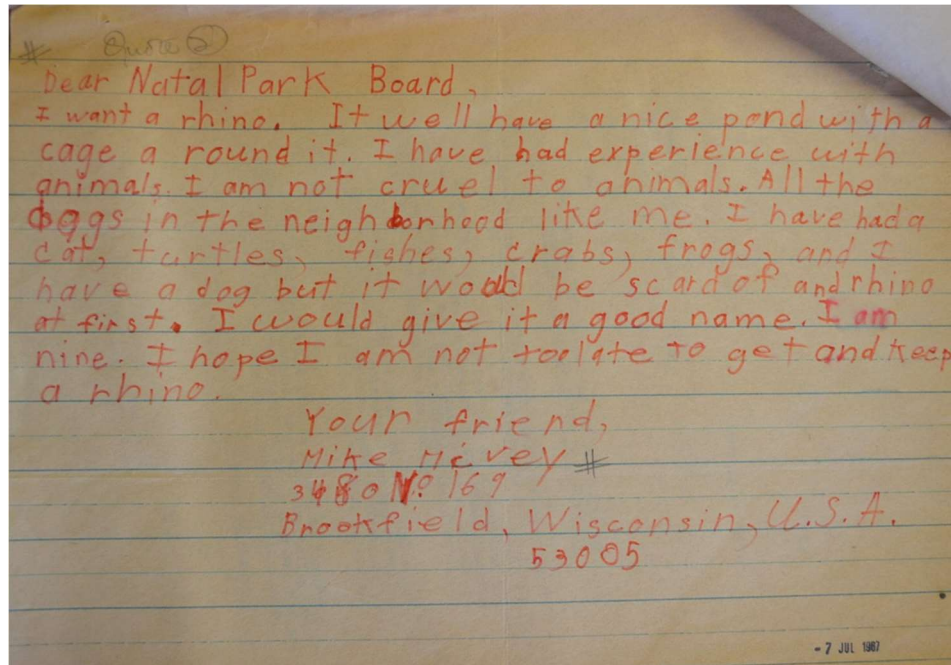 # Quote 2
Dear Natal Park Board,
I want a rhino. It well have a nice pond with a
cage a round it. I have had experience with
animals. I am not cruel to animals. All the
dogs in the neighborhood like me. I have had a
cat, turtles, fishes, crabs, frogs, and I
have a dog but it would be scard of and rhino
at first. I would give it a good name. I am
nine. I hope I am not toolate to get and keep
a rhino.
Your friend,
Mike McVey #
3480 No 169
Brookfield, Wisconsin, U.S.A.
53005
- 7 JUL 1967